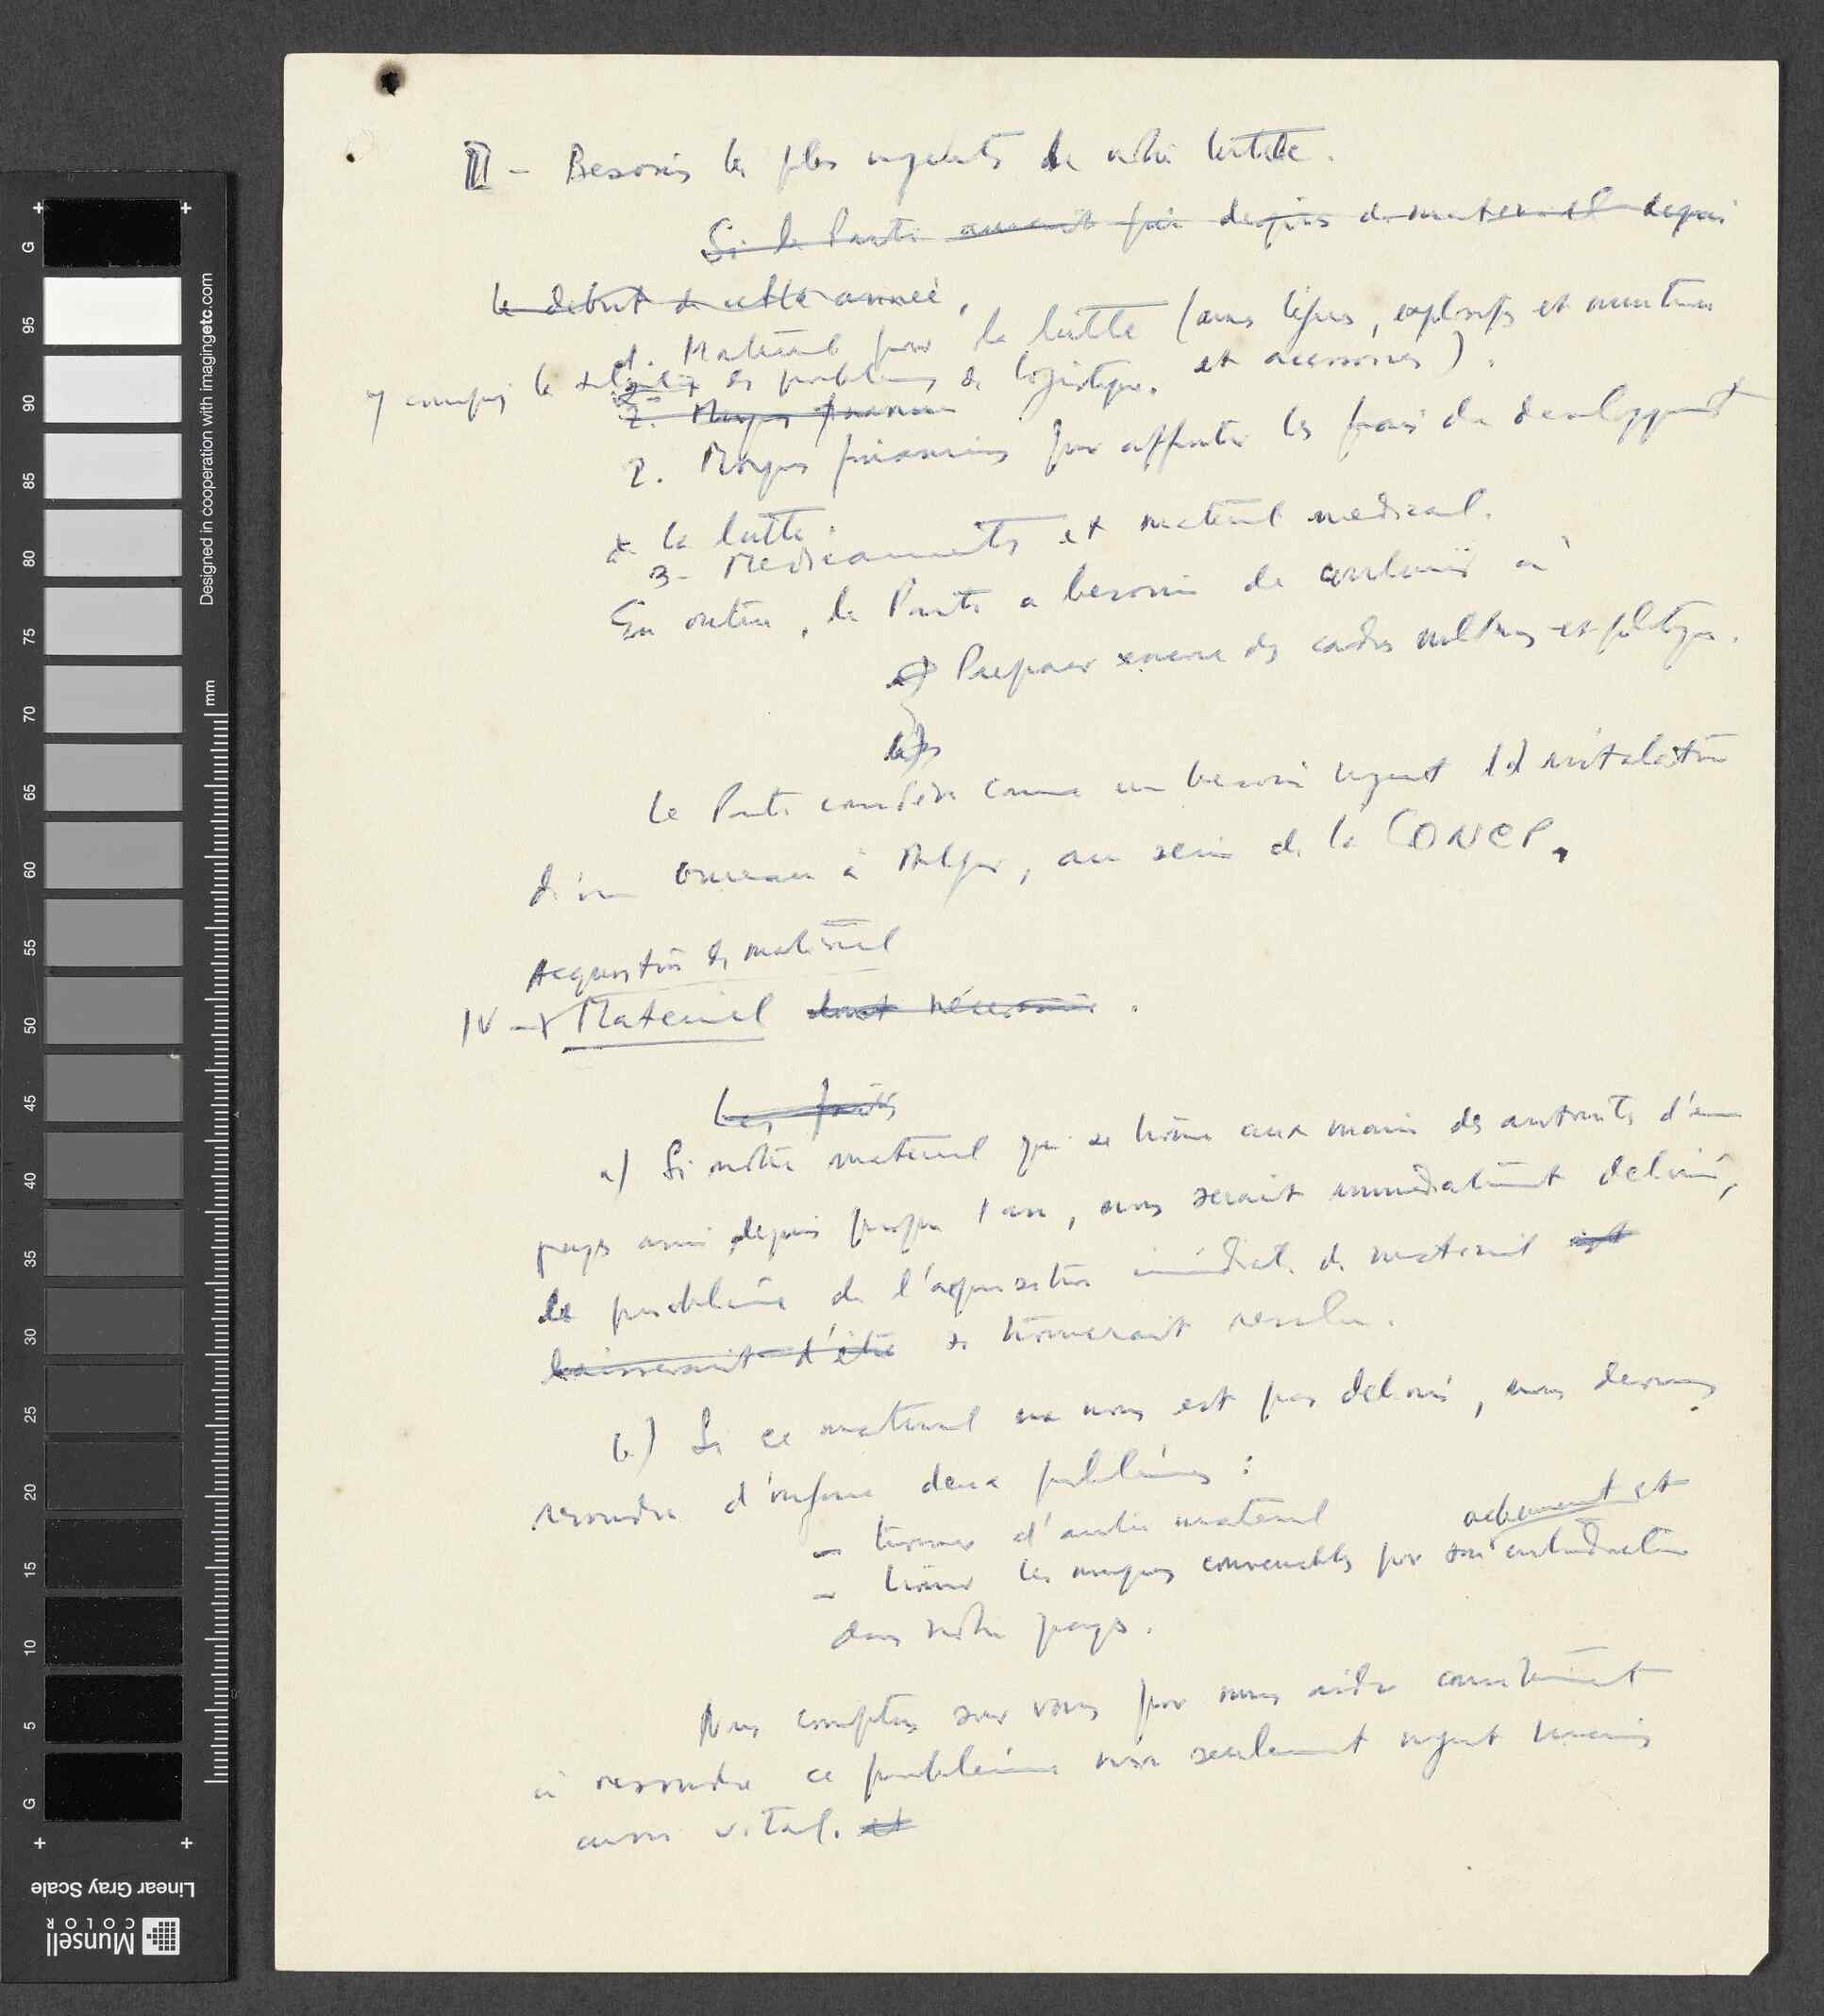 III - Besoins les plus urgents de notre lutte.
Si le Parti avait pu depuis du materiel depuis
le debut de cette année,
1. Materiel pour la lutte (armes légères, explosifs et munitions
et accessoires).
y compris la des problèmes de logistique.
2. Moyens financiers
2. Moyens financiers pour affronter les frais du developpement
de la lutte.
3- Medicaments et materiel medical.
En outre, le Parti a besoin de continuer à
a) Preparer encore des cadres militaires et politiques.
b)
Le Parti considère comme un besoin urgent l'installation
d'un bureau à Alger, au sein de la CONCP.
Acquisition de matériel
IV - Materiel dont nécessaire.
Les frais
a) Si notre materiel qui se trouve aux mains des autorités d'un
pays ami depuis presque 1 an, nous serait immediatement delivré,
le problème de l'aquisition immédiate de materiel est
laisserait d'être se trouverait resolu.
b) Si ce materiel ne nous est pas delivré, nous devrons
resoudre d'urgence deux problèmes :
- trouver d'autre materiel
- trouver les moyens convenables pour son acheminement et introduction
dans notre pays.
Nous comptons sur vous pour nous aider concrètement
à resoudre ce problème non seulement urgent mais
aussi vital. et
Designed in cooperation with imagingetc.com
mm
G
95
90
85
80
75
70
65
60
55
50
45
40
35
30
25
20
15
10
5
G
Linear Gray Scale
Munsell
COLOR